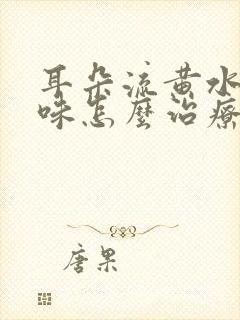 耳朵流黄水
味怎麼治療
唐果